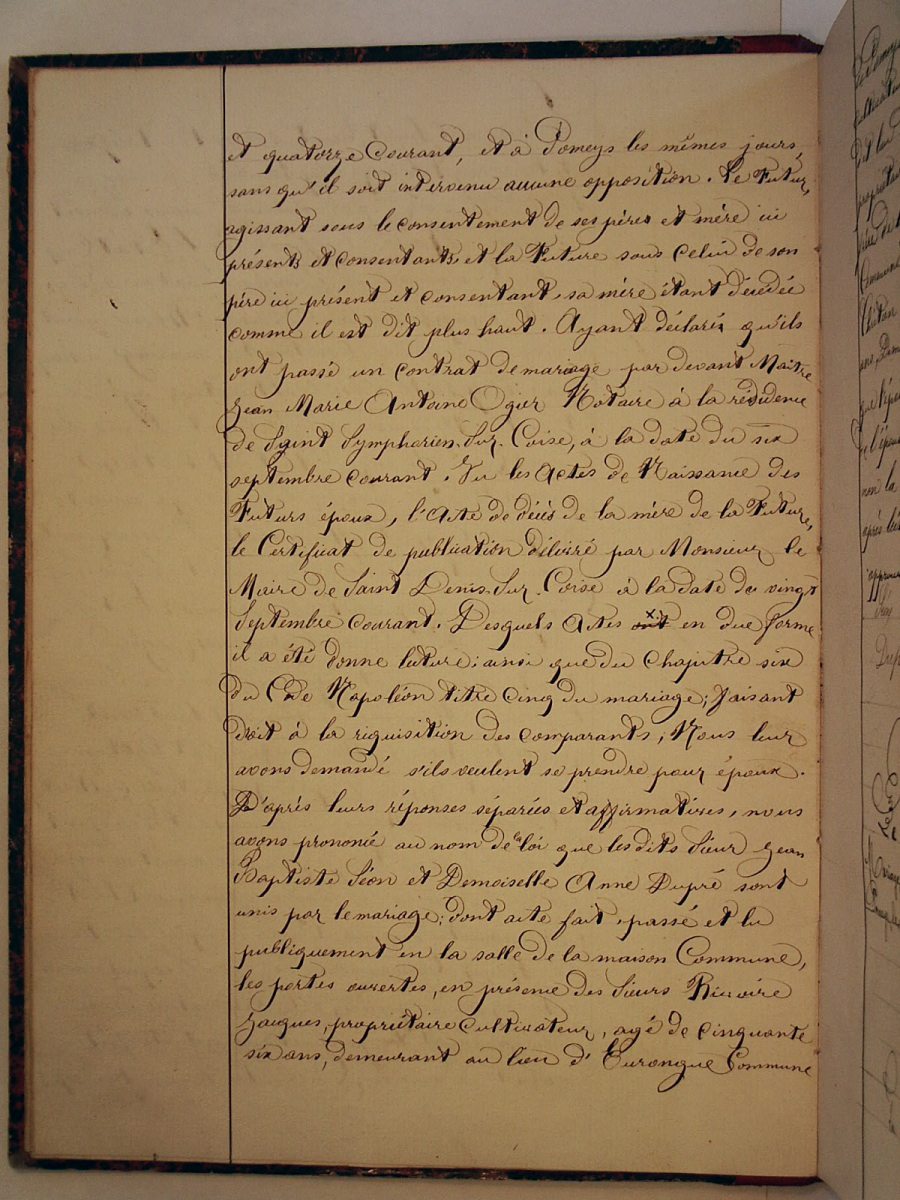 et quatorze courant, et à Pomeys les mêmes jours,
sans qu'il soit intervenu aucune opposition. Le Futur,
agissant sous le consentement de ses père et mère ici
présents et consentants, et la Future sous celui de son
père ici présent et consentant, sa mère étant décédée
comme il est dit plus haut. Ayant déclaré qu'ils
ont passé un contrat de mariage par devant Maître
Jean Marie Antoine Ogier Notaire à la résidence
de Saint Symphorien-Sur-Coise, à la date du six
septembre courant. Vu les Actes de Naissance des
Futurs époux, l'Acte de décès de la mère de la Future,
le Certificat de publication délivré par Monsieur le
Maire de Saint Denis-Sur-Coise à la date du vingt
Septembre courant. Desquels Actes x en due forme
il a été donné lecture; ainsi que du Chapitre six
du Code Napoléon titre cinq du mariage; faisant
droit à la réquisition des comparants, Nous leur
avons demandé s'ils veulent se prendre pour époux.
D'après leurs réponses séparées et affirmatives, nous
avons prononcé au nom de la loi que les dits Sieur Jean
Baptiste Séon et Demoiselle Anne Dupré sont
unis par le mariage; dont acte fait, passé et lu
publiquement en la salle de la maison Commune,
les portes ouvertes, en présence des Sieurs Rivoire
Jacques, propriétaire cultivateur, agé de cinquante
six ans, demeurant au lieu d' Eurongue Commune